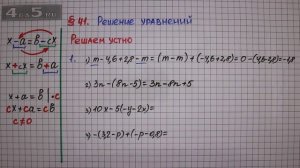 4 класс
§ 41. Решение уравнений
Решаем устно
x - a = b - cx
x + cx = b + a
x + a = b | · c
cx + ca = cb
c ≠ 0
1. 1) m - 4,6 + 2,8 - m = (m - m) + (-4,6 + 2,8) = 0 - (4,6 - 2,8) = -1,8
2) 3n - (8n - 5) = 3n - 8n + 5
3) 10x - 5(-y - 2x) =
-(3,2 - p) + (-p - 0,8) =